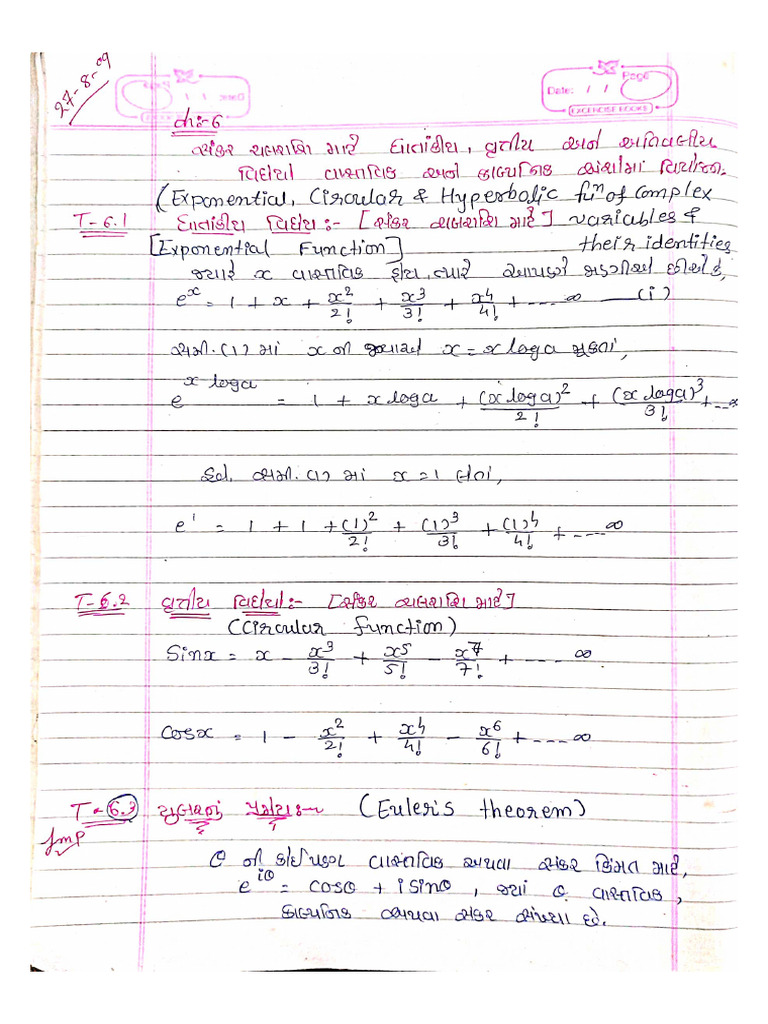 27-8-09
Date: / /
Page
EXCERCISE BOOKS
પ્ર:-6
સંકર ચલરાશિ માટે ઘાતાંકીય, વૃત્તીય અને અતિવલીય
વિધેયો વાસ્તવિક અને કાલ્પનિક અંશોમાં વિયોજન.
(Exponential, Circular & Hyperbolic fuⁿ of complex
T-6.1 ઘાતાંકીય વિધેય:- [સંકર ચલરાશિ માટે] variables &
[Exponential Function] their identities
જ્યારે x વાસ્તવિક હોય, ત્યારે આપણે જાણીએ છીએ કે,
e^x = 1 + x + x²/2! + x³/3! + x⁴/4! + ---- ∞ —(i)
સમી.(1) માં x ની જગ્યાએ x = x loga મૂકતાં,
e^(x loga) = 1 + x loga + (x loga)²/2! + (x loga)³/3! + --- ∞
હવે, સમી.(1) માં x = 1 લેતાં,
e¹ = 1 + 1 + (1)²/2! + (1)³/3! + (1)⁴/4! + ---- ∞
T-6.2 વૃત્તીય વિધેયો:- [સંકર ચલરાશિ માટે]
(Circular function)
Sinx = x - x³/3! + x⁵/5! - x⁷/7! + ---- ∞
cosx = 1 - x²/2! + x⁴/4! - x⁶/6! + ---- ∞
T-6.3 યુલરનું પ્રમેય:- (Euler's theorem)
Imp
θ ની કોઈપણ વાસ્તવિક અથવા સંકર કિંમત માટે,
e^(iθ) = cosθ + i sinθ , જ્યાં θ વાસ્તવિક,
કાલ્પનિક અથવા સંકર સંખ્યા છે.